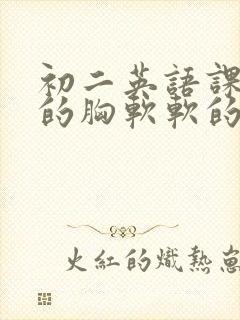 初二英語課
的胸軟軟的
火紅的熾熱